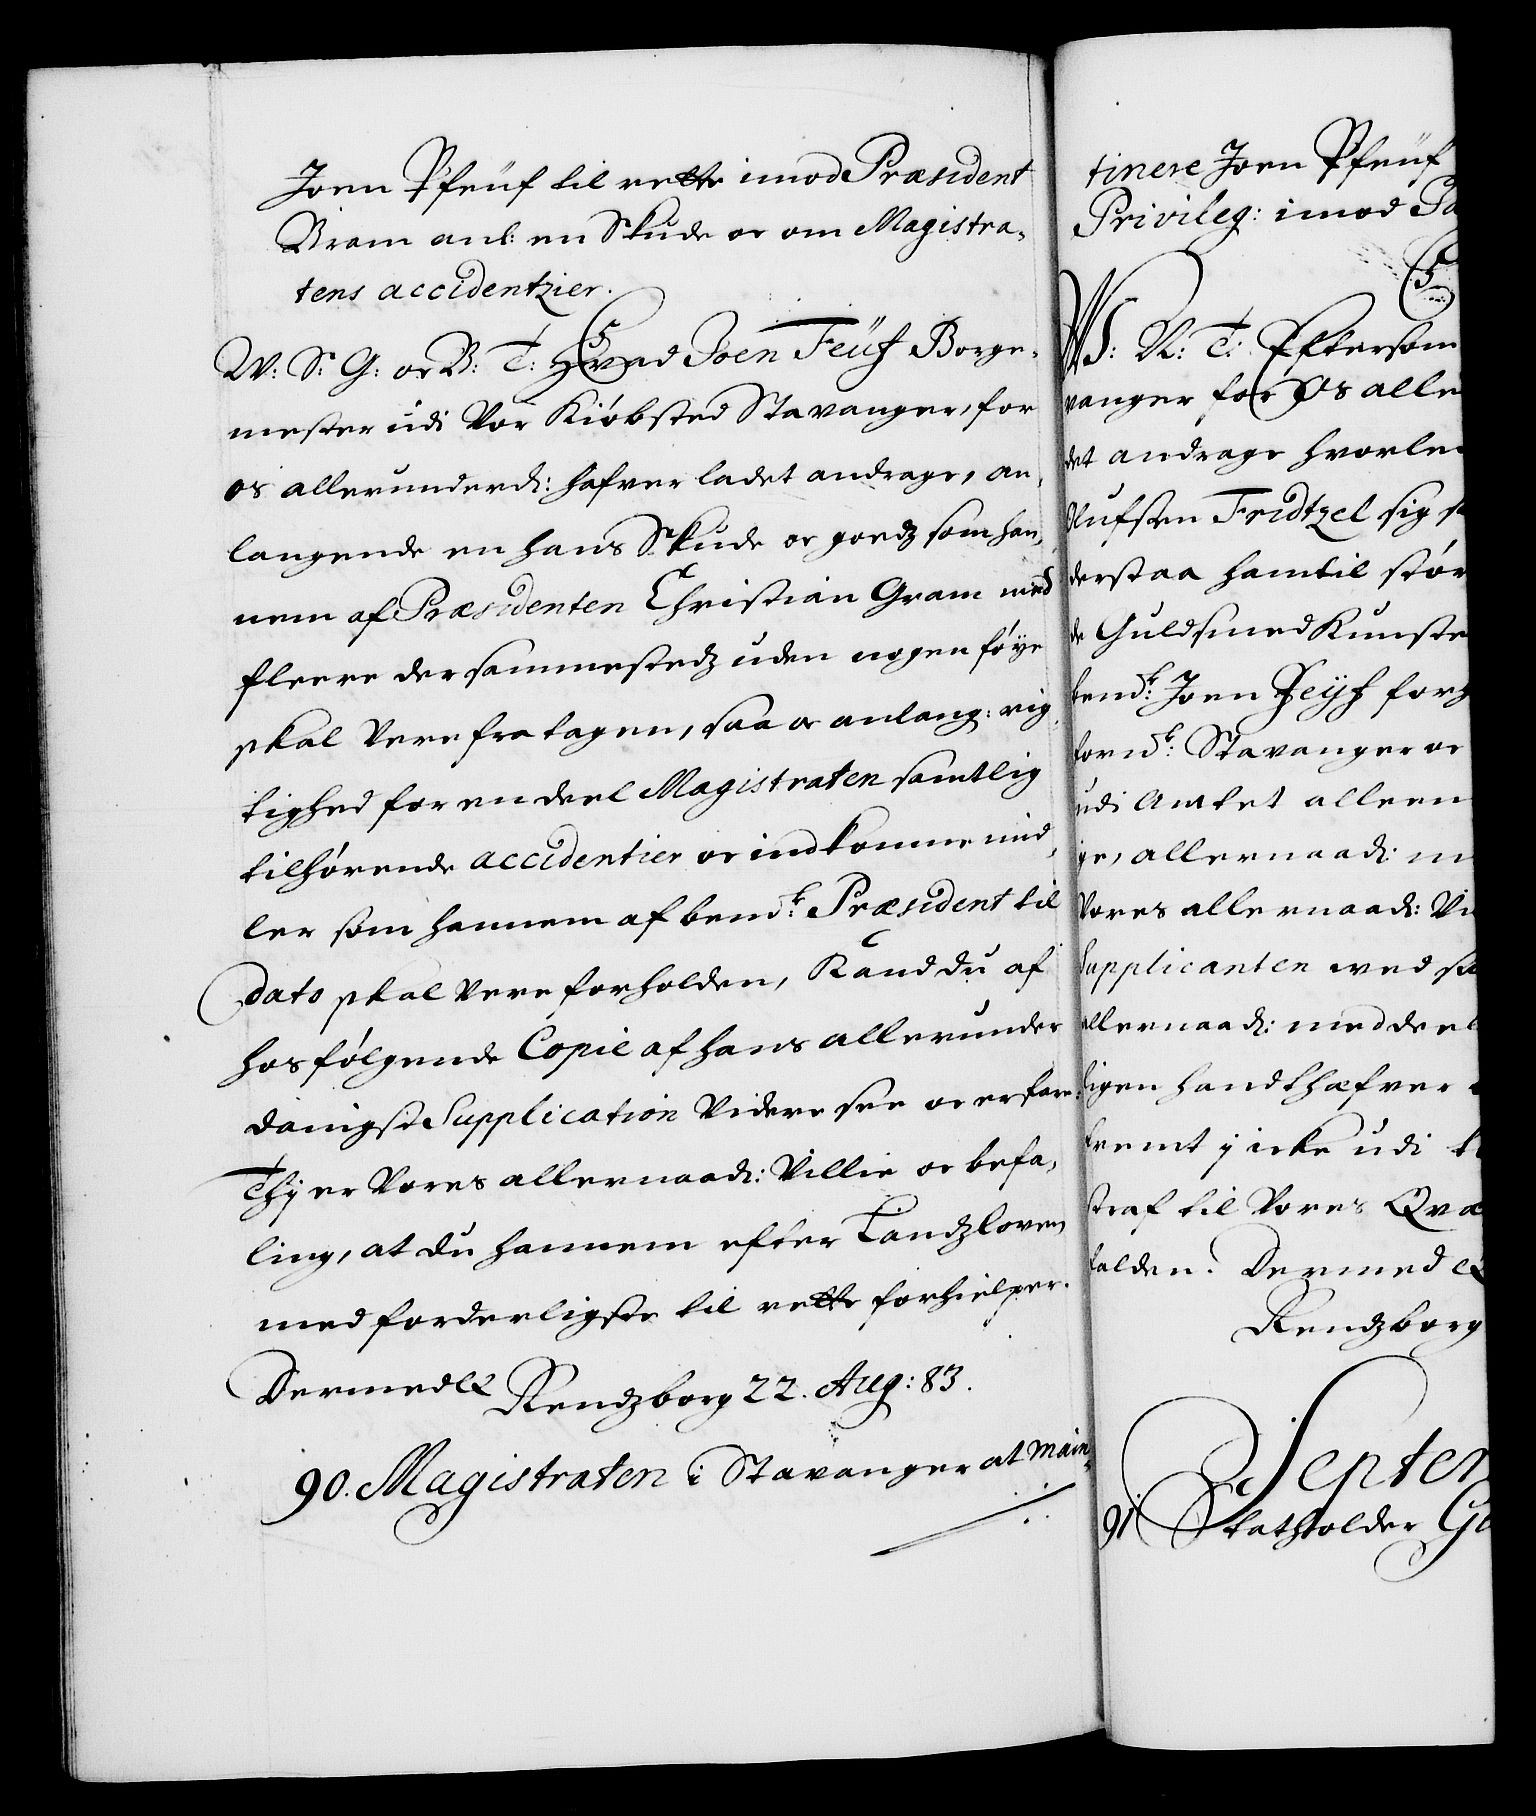 Joen Pfeuf til rette imod Præsident
Gram anl: en Skude oc om Magistra-
tens accidentzier.
C5
W: S: G: oc B: T: Hvad Joen Feuf Borge-
mester udi Vor Kiøbsted Stavanger, for
os allerunderd: hafver ladet andrage, an-
langende en hans Skude oc goedz som han-
nem af Præsidenten Christian Gram med
fleere dersammestedz uden nogen føye
skal Vere fratagen, saa oc anlang: rig-
tighed for en deel Magistraten samtlig
tilhørende accidentier oc indkomme mid-
ler som hannem af bemte: Præsident til
dato skal Vere forholden, Kand du af
hosfølgende Copie af hans allerunder
danigste Supplication Videre see oc erfare:
Thj er Vores allernaad: Villie oc befa-
ling, at du hannem efter Landzloven
med forderligste til rette forhielper.
Dermed &c Rendzborg 22. Aug: 83.
90. Magistraten i Stavanger at main-
tinere Joen Pfeuf
Privileg: imod
C5
W: S: T: Eftersom
vanger for Os alle
det andrage hvorle
Olufsen Fridtzel sig
derstaa ham til stør
de Guldsmed Kunste
bemte: Joen Feyf forh
forne: Stavanger oc
udi Amtet alleen
ge, allernaad: m
Vores allernaad: Vi
Supplicanten ved sa
allernaad: meddeel
ligen handthæfver
fremt j icke udi
straf til Vores
falden. Dermed &c
Rendzborg
Septem
91 Stathholder